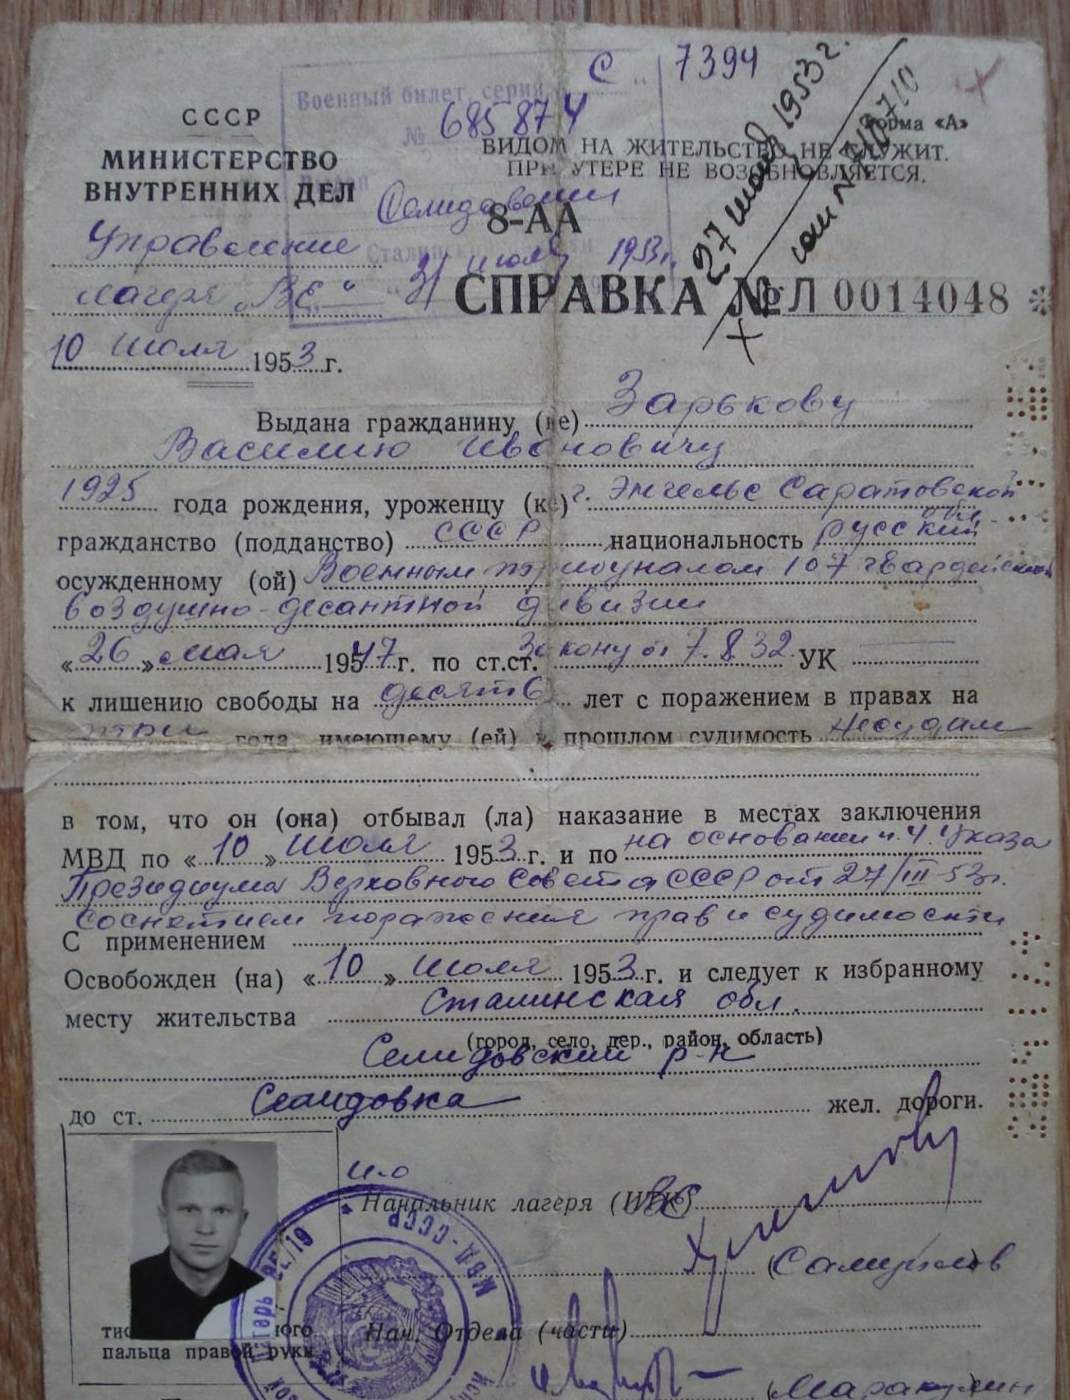 С 7394
Военный билет, серия
№ 685874
27 июля 1953 г.
СССР
МИНИСТЕРСТВО
ВНУТРЕННИХ ДЕЛ
Форма «А»
ВИДОМ НА ЖИТЕЛЬСТВО НЕ СЛУЖИТ.
ПРИ УТЕРЕ НЕ ВОЗОБНОВЛЯЕТСЯ.
8-АА
Управление
лагеря „ВЕ“
31 июля 1953г.
СПРАВКА № Л 0014048
10 Июля 1953 г.
Выдана гражданину (ке) Зарькову
Василию Ивановичу
1925 года рождения, уроженцу (ке) г. Энгельс Саратовской обл.
гражданство (подданство) СССР, национальность русский
осужденному (ой) Военным трибуналом 107 гвардейской
воздушно-десантной дивизии
«26» мая 1947 г. по ст.ст. Закону от 7.8.32 УК
к лишению свободы на десять лет с поражением в правах на
три года, имеющему (ей) в прошлом судимость несудим
в том, что он (она) отбывал (ла) наказание в местах заключения
МВД по «10» Июля 1953 г. и по на основании ч. 4. Указа
Президиума Верховного Совета СССР от 27/III-53г.
Со снятием поражения прав и судимости
С применением
Освобожден (на) «10» Июля 1953 г. и следует к избранному
месту жительства Сталинская обл.
(город, село, дер., район, область)
Селидовский р-н
до ст. Селидовка жел. дороги.
И.о
Начальник лагеря (ИТК)
МВД-СССР
Нач. Отдела (части)
пальца правой руки